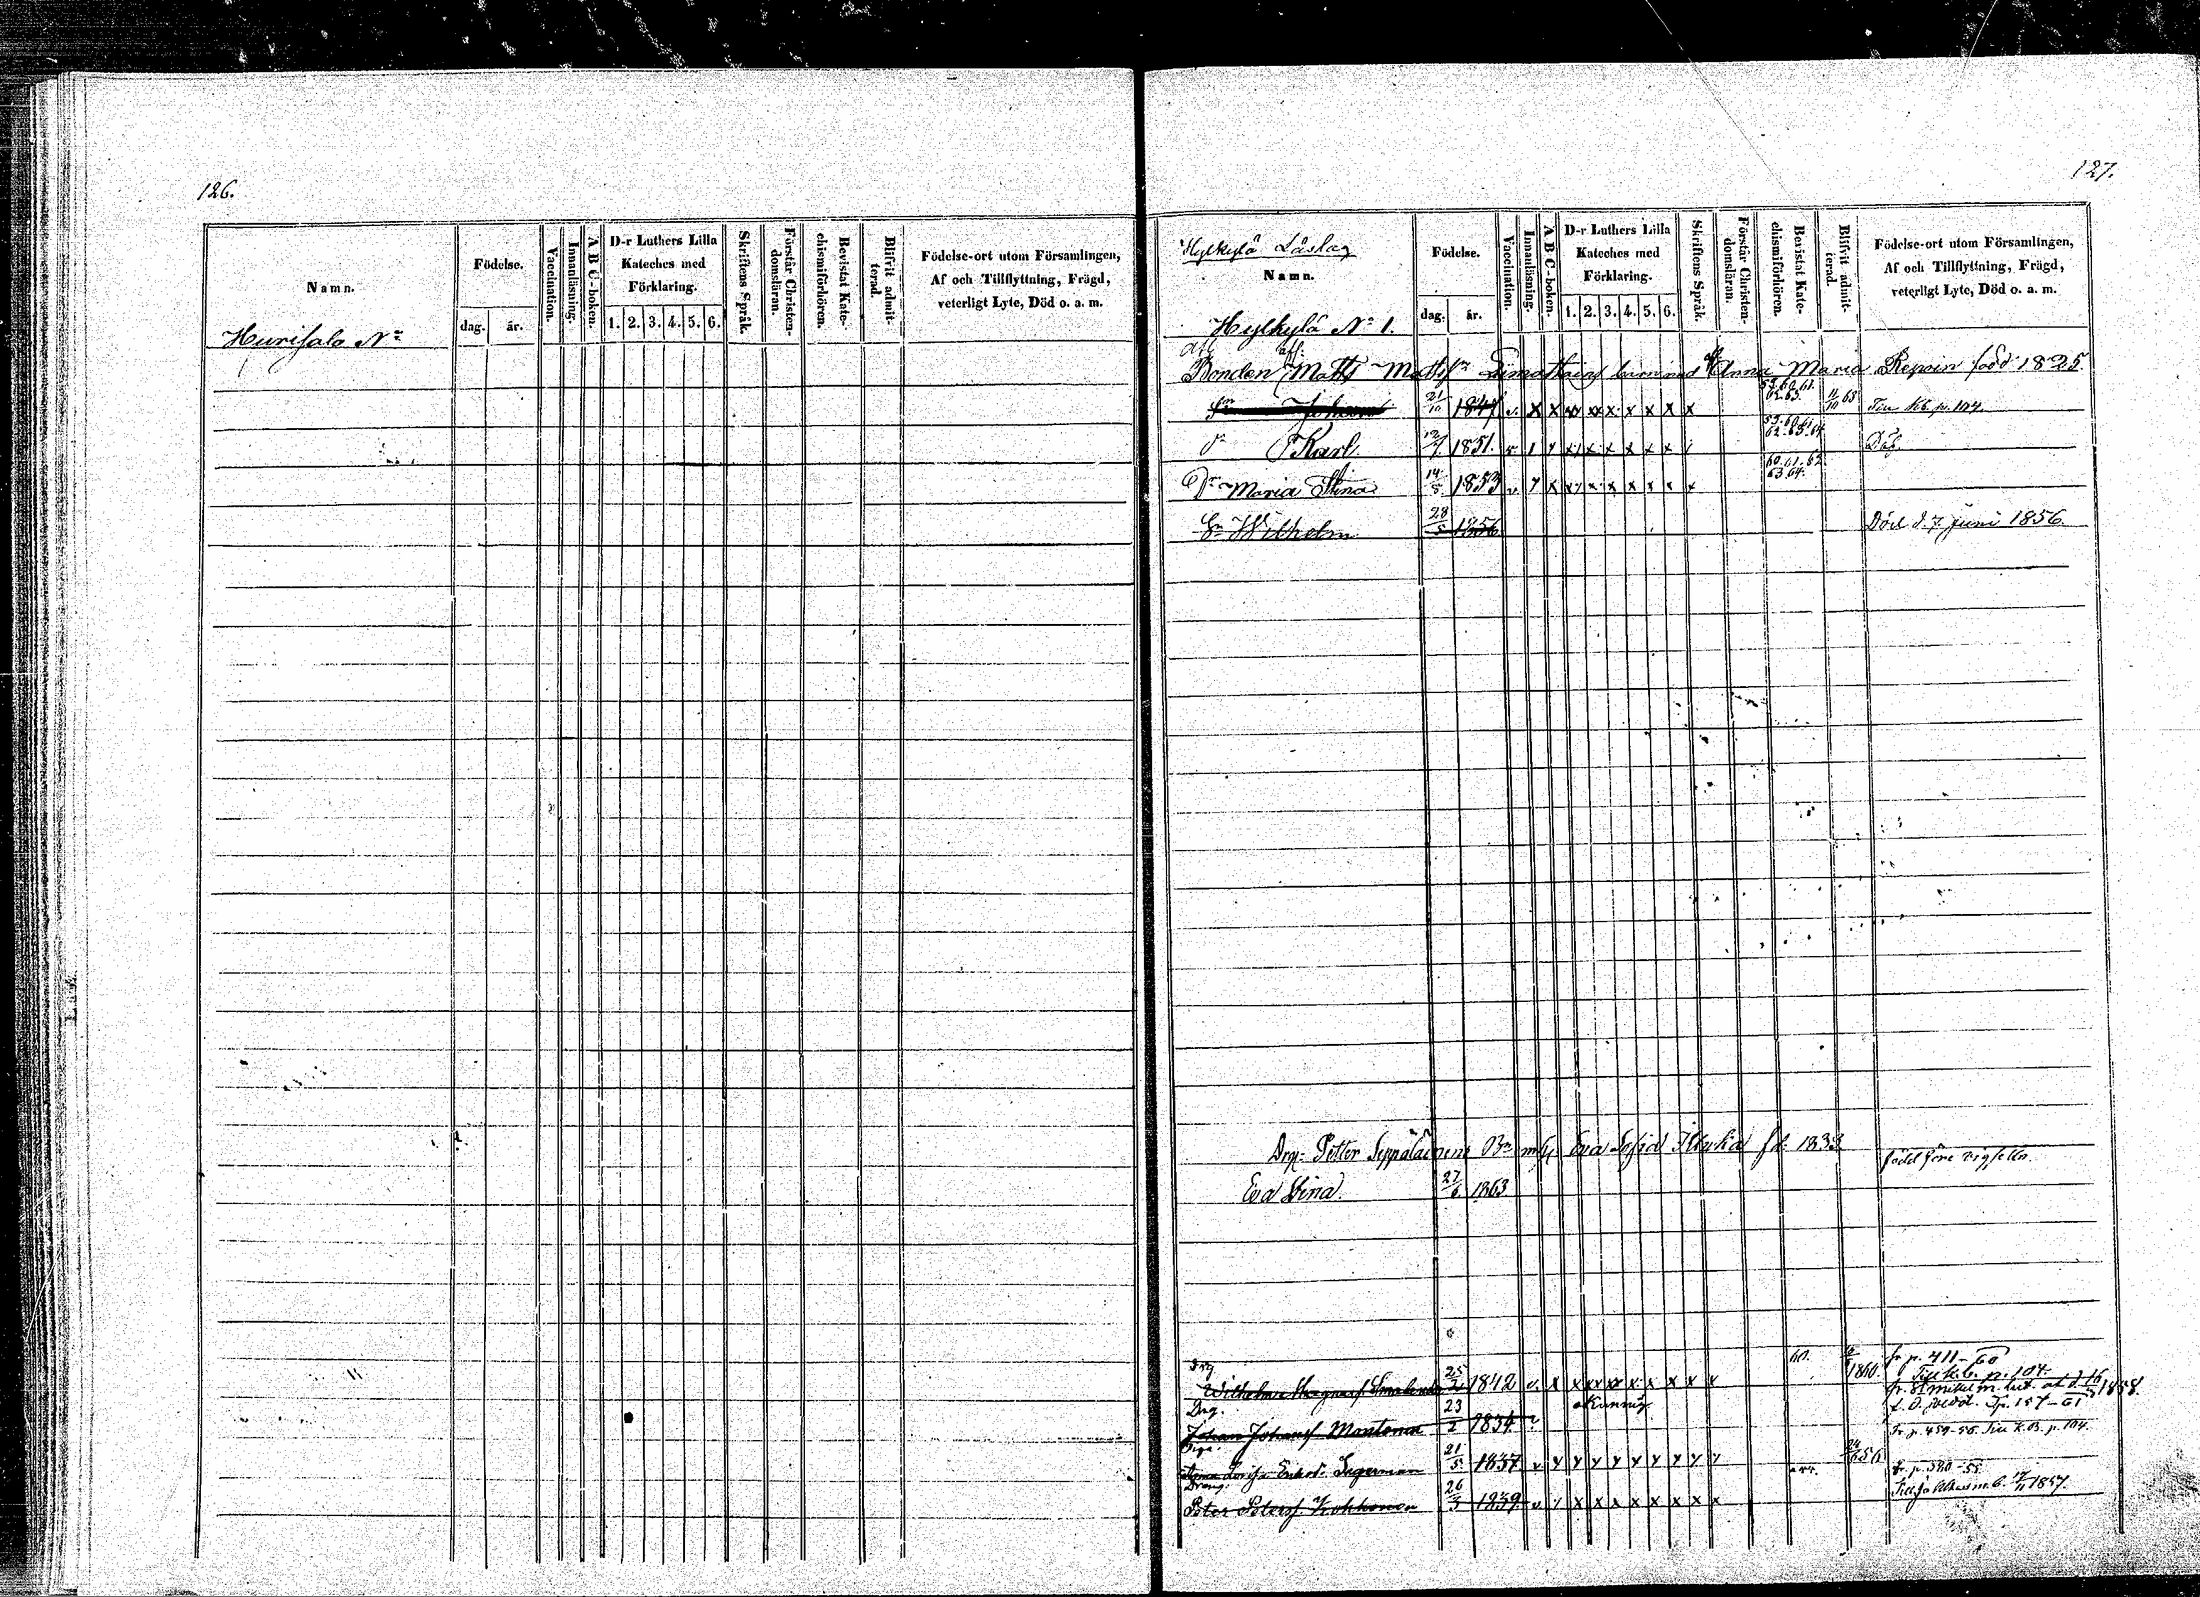 126.
Namn.
Födelse.
dag. år.
Vaccination.
Innanläsning.
A B C-boken.
D-r Luthers Lilla
Kateches med
Förklaring.
1. 2. 3. 4. 5. 6.
Skriftens Språk.
Förstår Christen-
domsläran.
Bevistat Kate-
chismiförhören.
Blifvit admit-
terad.
Födelse-ort utom Församlingen,
Af och Tillflyttning, Frägd,
veterligt Lyte, Död o. a. m.
Hurisalo No
127.
Hylkylä Läslag
Namn.
Födelse.
dag. år.
Vaccination.
Innanläsning.
A B C-boken.
D-r Luthers Lilla
Kateches med
Förklaring.
1. 2. 3. 4. 5. 6.
Skriftens Språk.
Förstår Christen-
domsläran.
Bevistat Kate-
chismiförhören.
Blifvit admit-
terad.
Födelse-ort utom Församlingen,
Af och Tillflyttning, Frägd,
veterligt Lyte, Död o. a. m.
Hylkylä No 1.
Bonden Matts barn med Anna Maria Repoin född 1825.
Sn Johan 21/10 1847 v. x x xx xx x x x x x 59.60.61. 62.63. 11/10 63 p. 104.
Karl 1851. x x x x 59.60.61. 62.63.64
Dr Maria Stina 14/5 1853 v x x x x x x 60.61.62. 63.64.
Sn Wilhelm 28/5 1856 Död d. 7 juni 1856.
Drg. Petter Seppäläinens Bn Eva Sofia fd. 1833
född före vigseln.
Eva Stina 27/6 1863
Drg
Wilhelm 25/2 1842 v. x x xx xx x x x x x 60. 1860. fr. p. 411-60
Till k.b. p. 104
Drg.
Johan Johansf Montonen 23/2 1834 okunnig p. 157-61
Piga.
Lovisa Enkod. Ingerman 21/5 1837 v 56 fr. p. 459-56. p. 104.
Dräng.
Peter Petersf. Kokkonen 26/3 1839 v x x x x x x x x 1857.